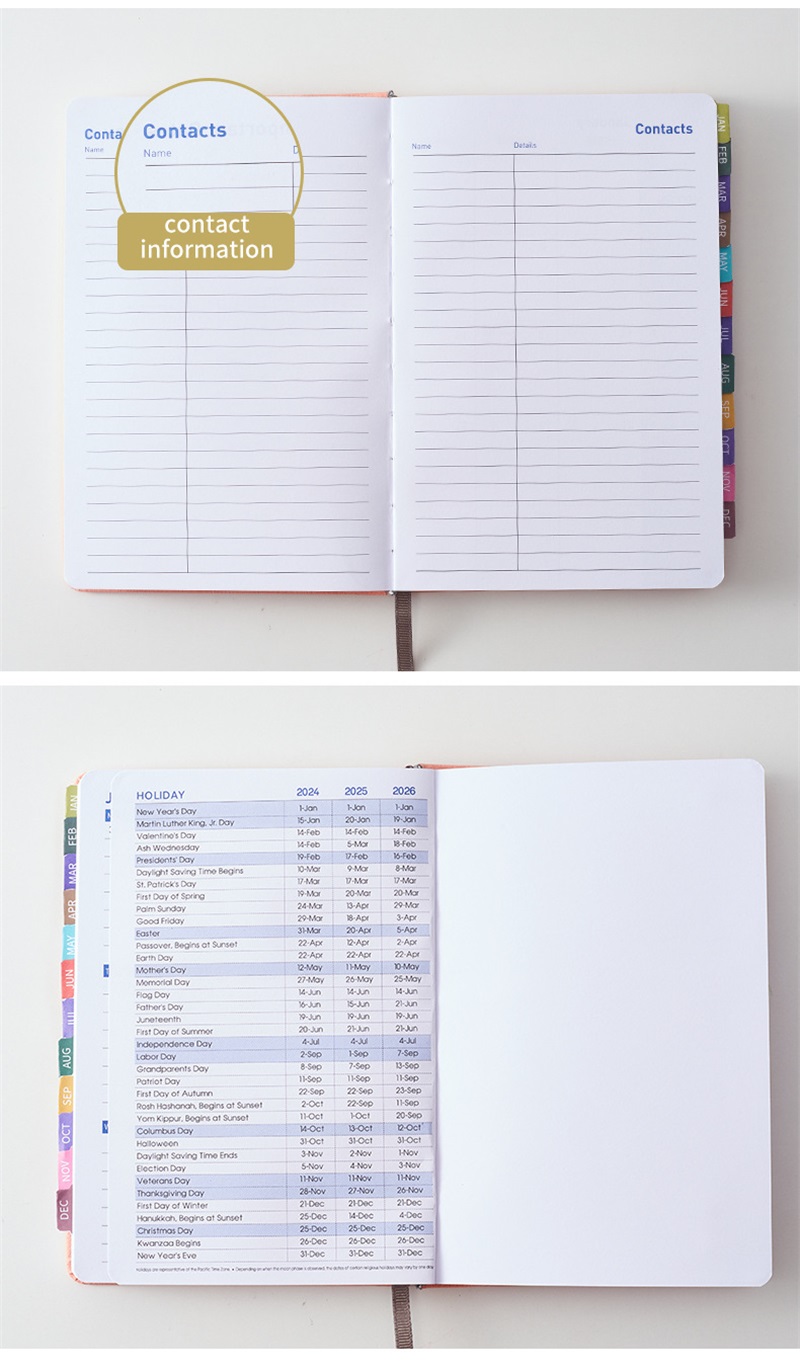 Conta
Name
Contacts
Name
D
contact
information
Contacts
Name
Details
JAN
FEB
MAR
APR
MAY
JUN
JUL
AUG
SEP
OCT
NOV
DEC
JAN
FEB
MAR
APR
MAY
JUN
JUL
AUG
SEP
OCT
NOV
DEC
HOLIDAY 2024 2025 2026
New Year's Day 1-Jan 1-Jan 1-Jan
Martin Luther King, Jr. Day 15-Jan 20-Jan 19-Jan
Valentine's Day 14-Feb 14-Feb 14-Feb
Ash Wednesday 14-Feb 5-Mar 18-Feb
Presidents' Day 19-Feb 17-Feb 16-Feb
Daylight Saving Time Begins 10-Mar 9-Mar 8-Mar
St. Patrick's Day 17-Mar 17-Mar 17-Mar
First Day of Spring 19-Mar 20-Mar 20-Mar
Palm Sunday 24-Mar 13-Apr 29-Mar
Good Friday 29-Mar 18-Apr 3-Apr
Easter 31-Mar 20-Apr 5-Apr
Passover, Begins at Sunset 22-Apr 12-Apr 2-Apr
Earth Day 22-Apr 22-Apr 22-Apr
Mother's Day 12-May 11-May 10-May
Memorial Day 27-May 26-May 25-May
Flag Day 14-Jun 14-Jun 14-Jun
Father's Day 16-Jun 15-Jun 21-Jun
Juneteenth 19-Jun 19-Jun 19-Jun
First Day of Summer 20-Jun 21-Jun 21-Jun
Independence Day 4-Jul 4-Jul 4-Jul
Labor Day 2-Sep 1-Sep 7-Sep
Grandparents Day 8-Sep 7-Sep 13-Sep
Patriot Day 11-Sep 11-Sep 11-Sep
First Day of Autumn 22-Sep 22-Sep 23-Sep
Rosh Hashanah, Begins at Sunset 2-Oct 22-Sep 11-Sep
Yom Kippur, Begins at Sunset 11-Oct 1-Oct 20-Sep
Columbus Day 14-Oct 13-Oct 12-Oct
Halloween 31-Oct 31-Oct 31-Oct
Daylight Saving Time Ends 3-Nov 2-Nov 1-Nov
Election Day 5-Nov 4-Nov 3-Nov
Veterans Day 11-Nov 11-Nov 11-Nov
Thanksgiving Day 28-Nov 27-Nov 26-Nov
First Day of Winter 21-Dec 21-Dec 21-Dec
Hanukkah, Begins at Sunset 25-Dec 14-Dec 4-Dec
Christmas Day 25-Dec 25-Dec 25-Dec
Kwanzaa Begins 26-Dec 26-Dec 26-Dec
New Year's Eve 31-Dec 31-Dec 31-Dec
Holidays are representative of the Pacific Time Zone. • Depending on when the moon phase is observed, the dates of certain religious holidays may vary by one day